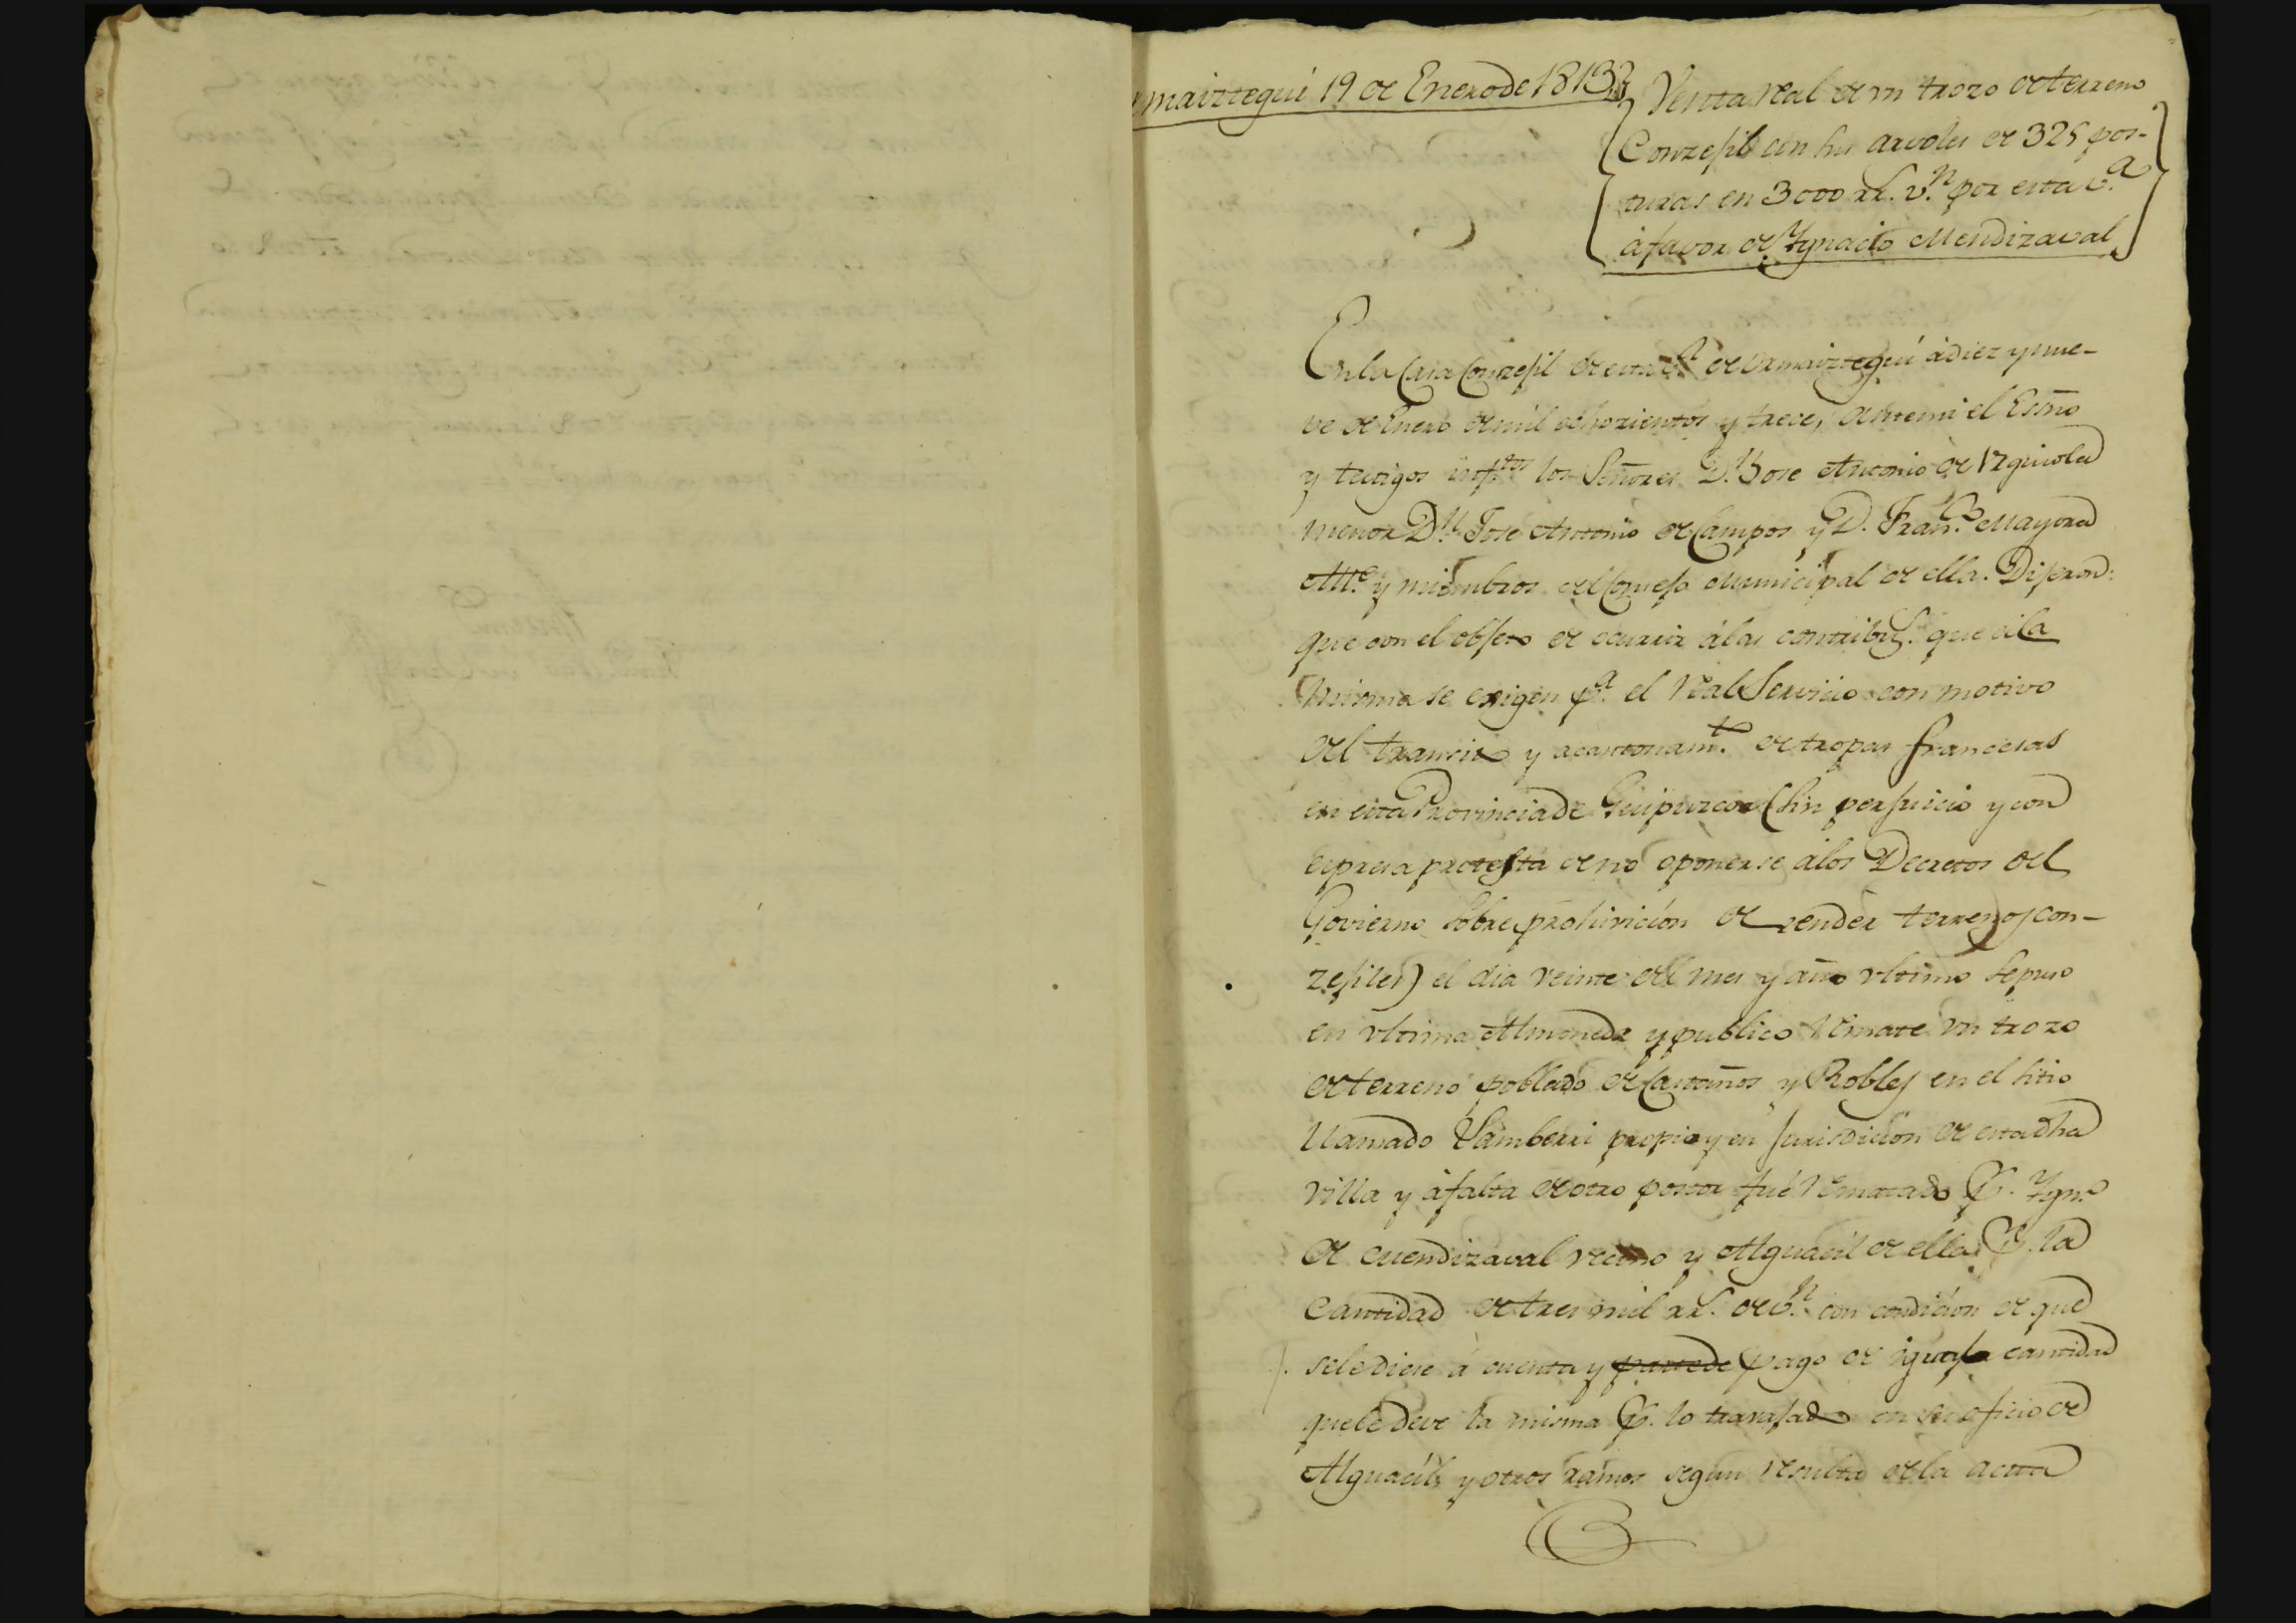 maiztegui 19 de Enero de 1813
Venta real de un trozo de terreno
Conzejil con sus arvoles de 325 pos-
turas en 3000 rr.s v.n por esta v.a
à favor de Ygnacio Mendizaval
En la Casa Conzejil de esta v.a de Urmaiztegui à diez y nue-
ve de Enero de mil ochozientos y trece, ante mi el Esño
y testigos infr.tos los Señores D.n Jose Antonio de Yzguiola
menor D.n Jose Antonio de Campos y D. Fran.co Mayora
All.e y miembros del Consejo Municipal de ella. Dijeron:
que con el objeto de ocurrir á las contribu.s que à la
misma se exigen p.a el Real Servicio con motivo
del transito y acantonam.to de tropas francesas
en esta Provincia de Guipuzcoa (sin perjuicio y con
expresa protesta de no oponerse à los Decretos del
Govierno sobre prohivición de vender terrenos con-
zejiles) el dia veinte del mes y año ultimo se puso
en ultima Almoneda y publico remate un trozo
de terreno poblado de Castaños y Robles en el sitio
llamado Ysamberri propio y en jurisdicion de esta dha
villa y à falta de otro postor fué rematado p.r Ygn.o
de Mendizaval vecino y Alguacil de ella p.r la
Cantidad de tres mil rr.s de v.n con condicion de que
se le diese à cuenta y parte de pago de igual cantidad
que le deve la misma p.r lo travajado en su oficio de
Alguacil y otros ramos segun resulta de la acta